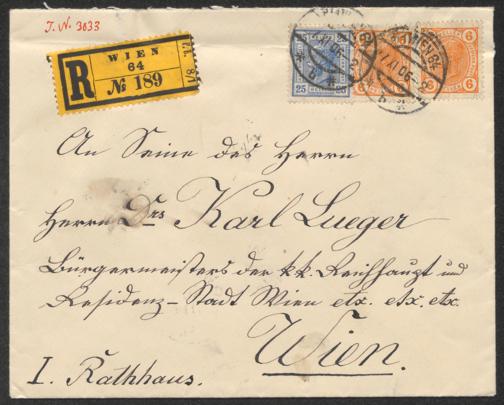 J. N. 3033
WIEN
64
R
№ 189
25 25
6 6
6
An Seine des Herrn
Herrn Drs Karl Lueger
Bürgermeisters der kk. Reichhaupt und
Residenz-Stadt Wien etx. etx. etx.
Wien.
I. Rathhaus.